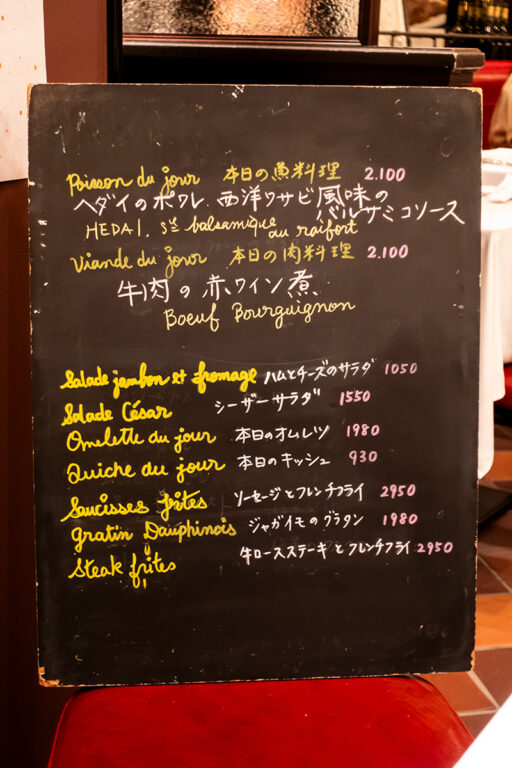 Poisson du jour 本日の魚料理 2.100
ヘダイのポワレ、西洋ワサビ風味の
バルサミコソース
HEDAI, Sce balsamique au raifort
Viande du jour 本日の肉料理 2.100
牛肉の赤ワイン煮
Boeuf Bourguignon
Salade jambon et fromage ハムとチーズのサラダ 1050
Salade César シーザーサラダ 1550
Omelette du jour 本日のオムレツ 1980
Quiche du jour 本日のキッシュ 930
Saucisses frites ソーセージとフレンチフライ 2950
gratin Dauphinois ジャガイモのグラタン 1980
Steak frites 牛ロースステーキとフレンチフライ 2950